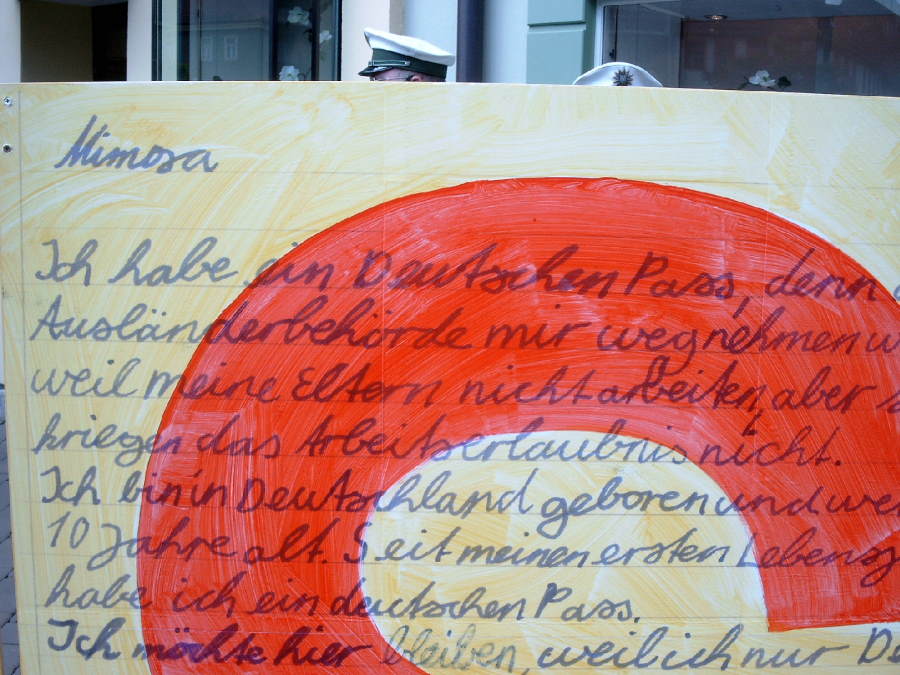 Mimosa
Ich habe ein Deutschen Pass, denn
Ausländerbehörde mir wegnehmen
weil meine Eltern nicht arbeiten, aber
kriegen das Arbeitserlaubnis nicht.
Ich bin in Deutschland geboren und
10 Jahre alt. Seit meinen ersten
habe ich ein deutschen Pass.
Ich möchte hier bleiben, weil ich nur